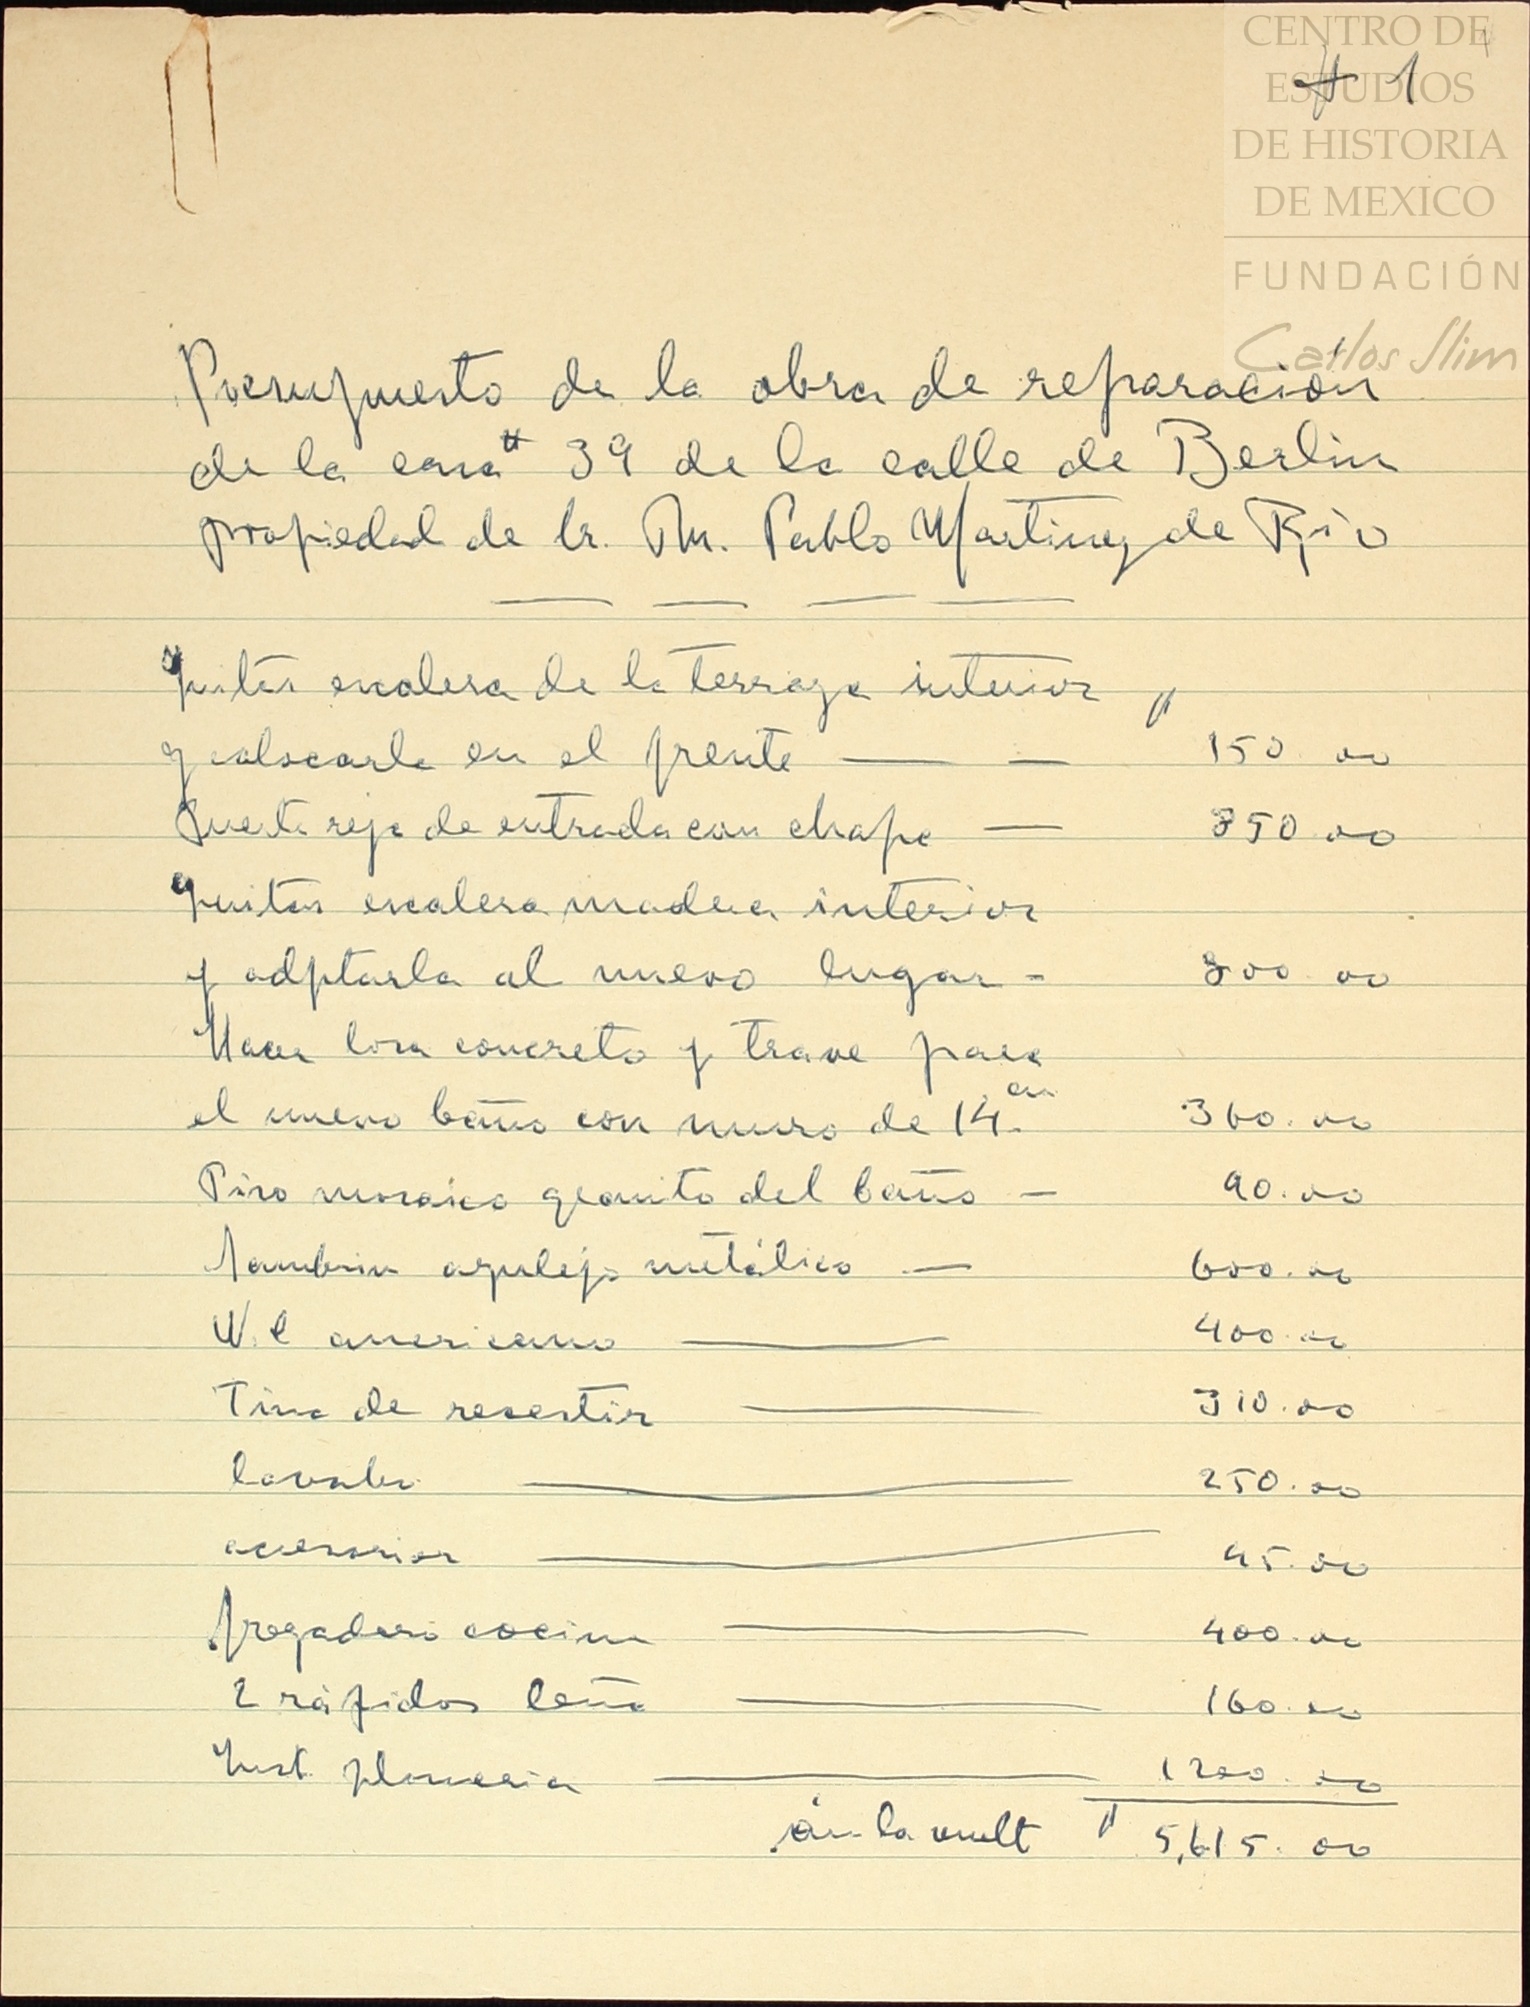 CENTRO DE
ESTUDIOS
DE HISTORIA
DE MEXICO
FUNDACIÓN
Carlos Slim
# 1
Presupuesto de la obra de reparacion
de la casa # 39 de la calle de Berlin
propiedad de Sr. Dn. Pablo Martinez de Rio
Quitar escalera de la terraza interior $
y colocarla en el frente — — 150.00
Puerta reja de entrada con chapa — 850.00
Quitar escalera madera interior
y adptarla al nuevo lugar - 800.00
Hacer losa concreto y trave para
el nuevo baño con muro de 14 cm 360.00
Piso mosaico granito del baño — 90.00
Lambrin azulejo metálico — 600.00
W.C americano — 400.00
Tina de revestir — 310.00
Lavabo — 250.00
accesorios — 45.00
fregadero cocina — 400.00
2 rápidos leña — 160.00
Inst. plomeria — 1200.00
a la vuelt $ 5,615.00